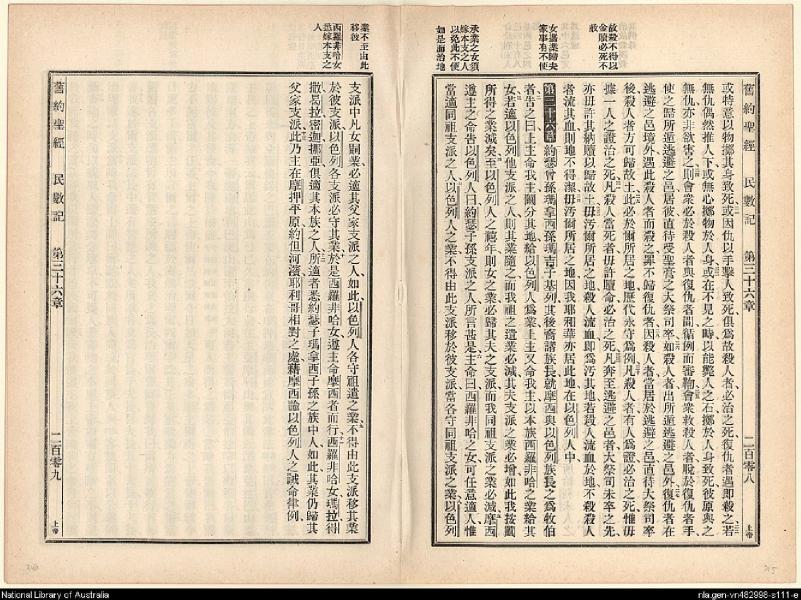 舊約聖經 民數記 第三十六章 二百零八 上帝
故殺不得以
金贖必死不
赦
女適業歸夫
家事有不便
承業之女須
嫁本支之人
以免此不便
或特意以物擲其身致死或因仇以手擊人致死俱爲故殺人者必治之死復仇者遇即殺之若
無仇偶然推人下或無心擲物於人身或在不見之時以能斃人之石擲於人身致死彼原與之
無仇亦非欲害之則會衆必於殺人者與復仇者間循例而審鞫會衆救殺人者脫於復仇者手
使之歸所遁逃避之邑居彼直待受聖膏之大祭司卒如殺人者出所遁逃避之邑外復仇者在
逃避之邑境外遇此殺人者而殺之罪不歸復仇者因殺人者當居於逃避之邑直待大祭司卒
後殺人者方可歸故土此必於爾所居之地歷代永守爲例凡殺人者有人爲證必治之死惟毋
據一人之證治之死凡殺人當死者毋許贖命必治之死凡奔至逃避之邑者大祭司未卒之先
亦毋許其納贖以歸故土毋污爾所居之地殺人流血即爲污其地若殺人流血於地不殺殺人
者流其血則地不得潔毋污爾所居之地因我耶和華亦居此地在以色列人中
第三十六章 約瑟曾孫瑪拿西孫瑪吉子基列其後裔諸族長就摩西與以色列族長之爲牧伯
者告之曰上主命我主鬮分其地給以色列人爲業上主又命我主以本族西羅非哈之業給其
女若適以色列他支派之人則其業隨之而我祖之遺業必減其夫支派之業必增如此我按鬮
所得之業減矣至以色列人之禧年則女之業必歸其夫之支派而我同祖支派之業必減摩西
遵主之命告以色列人曰約瑟子孫支派之人所言甚是主命曰西羅非哈之女可任意適人惟
當適同祖支派之人以色列人之業不得由此支派移於彼支派當各守同祖支派之業以色列
業不至由此
移彼
西羅非哈女
悉嫁本支之
人
支派中凡女嗣業必適其父家支派之人如此以色列人各守祖遺之業不得由此支派移其業
於彼支派以色列各支派必守其業於是西羅非哈女遵主命摩西者而行西羅非哈女瑪拉得
撒曷拉密迦挪亞俱適其本族之人所適者悉約瑟子瑪拿西子孫之族中人如此其業仍歸其
父家支派此乃主在摩押平原約但河濱耶利哥相對之處藉摩西諭以色列人之誡命律例
舊約聖經 民數記 第三十六章 二百零九 上帝
National Library of Australia
nla.gen-vn482998-s111-e